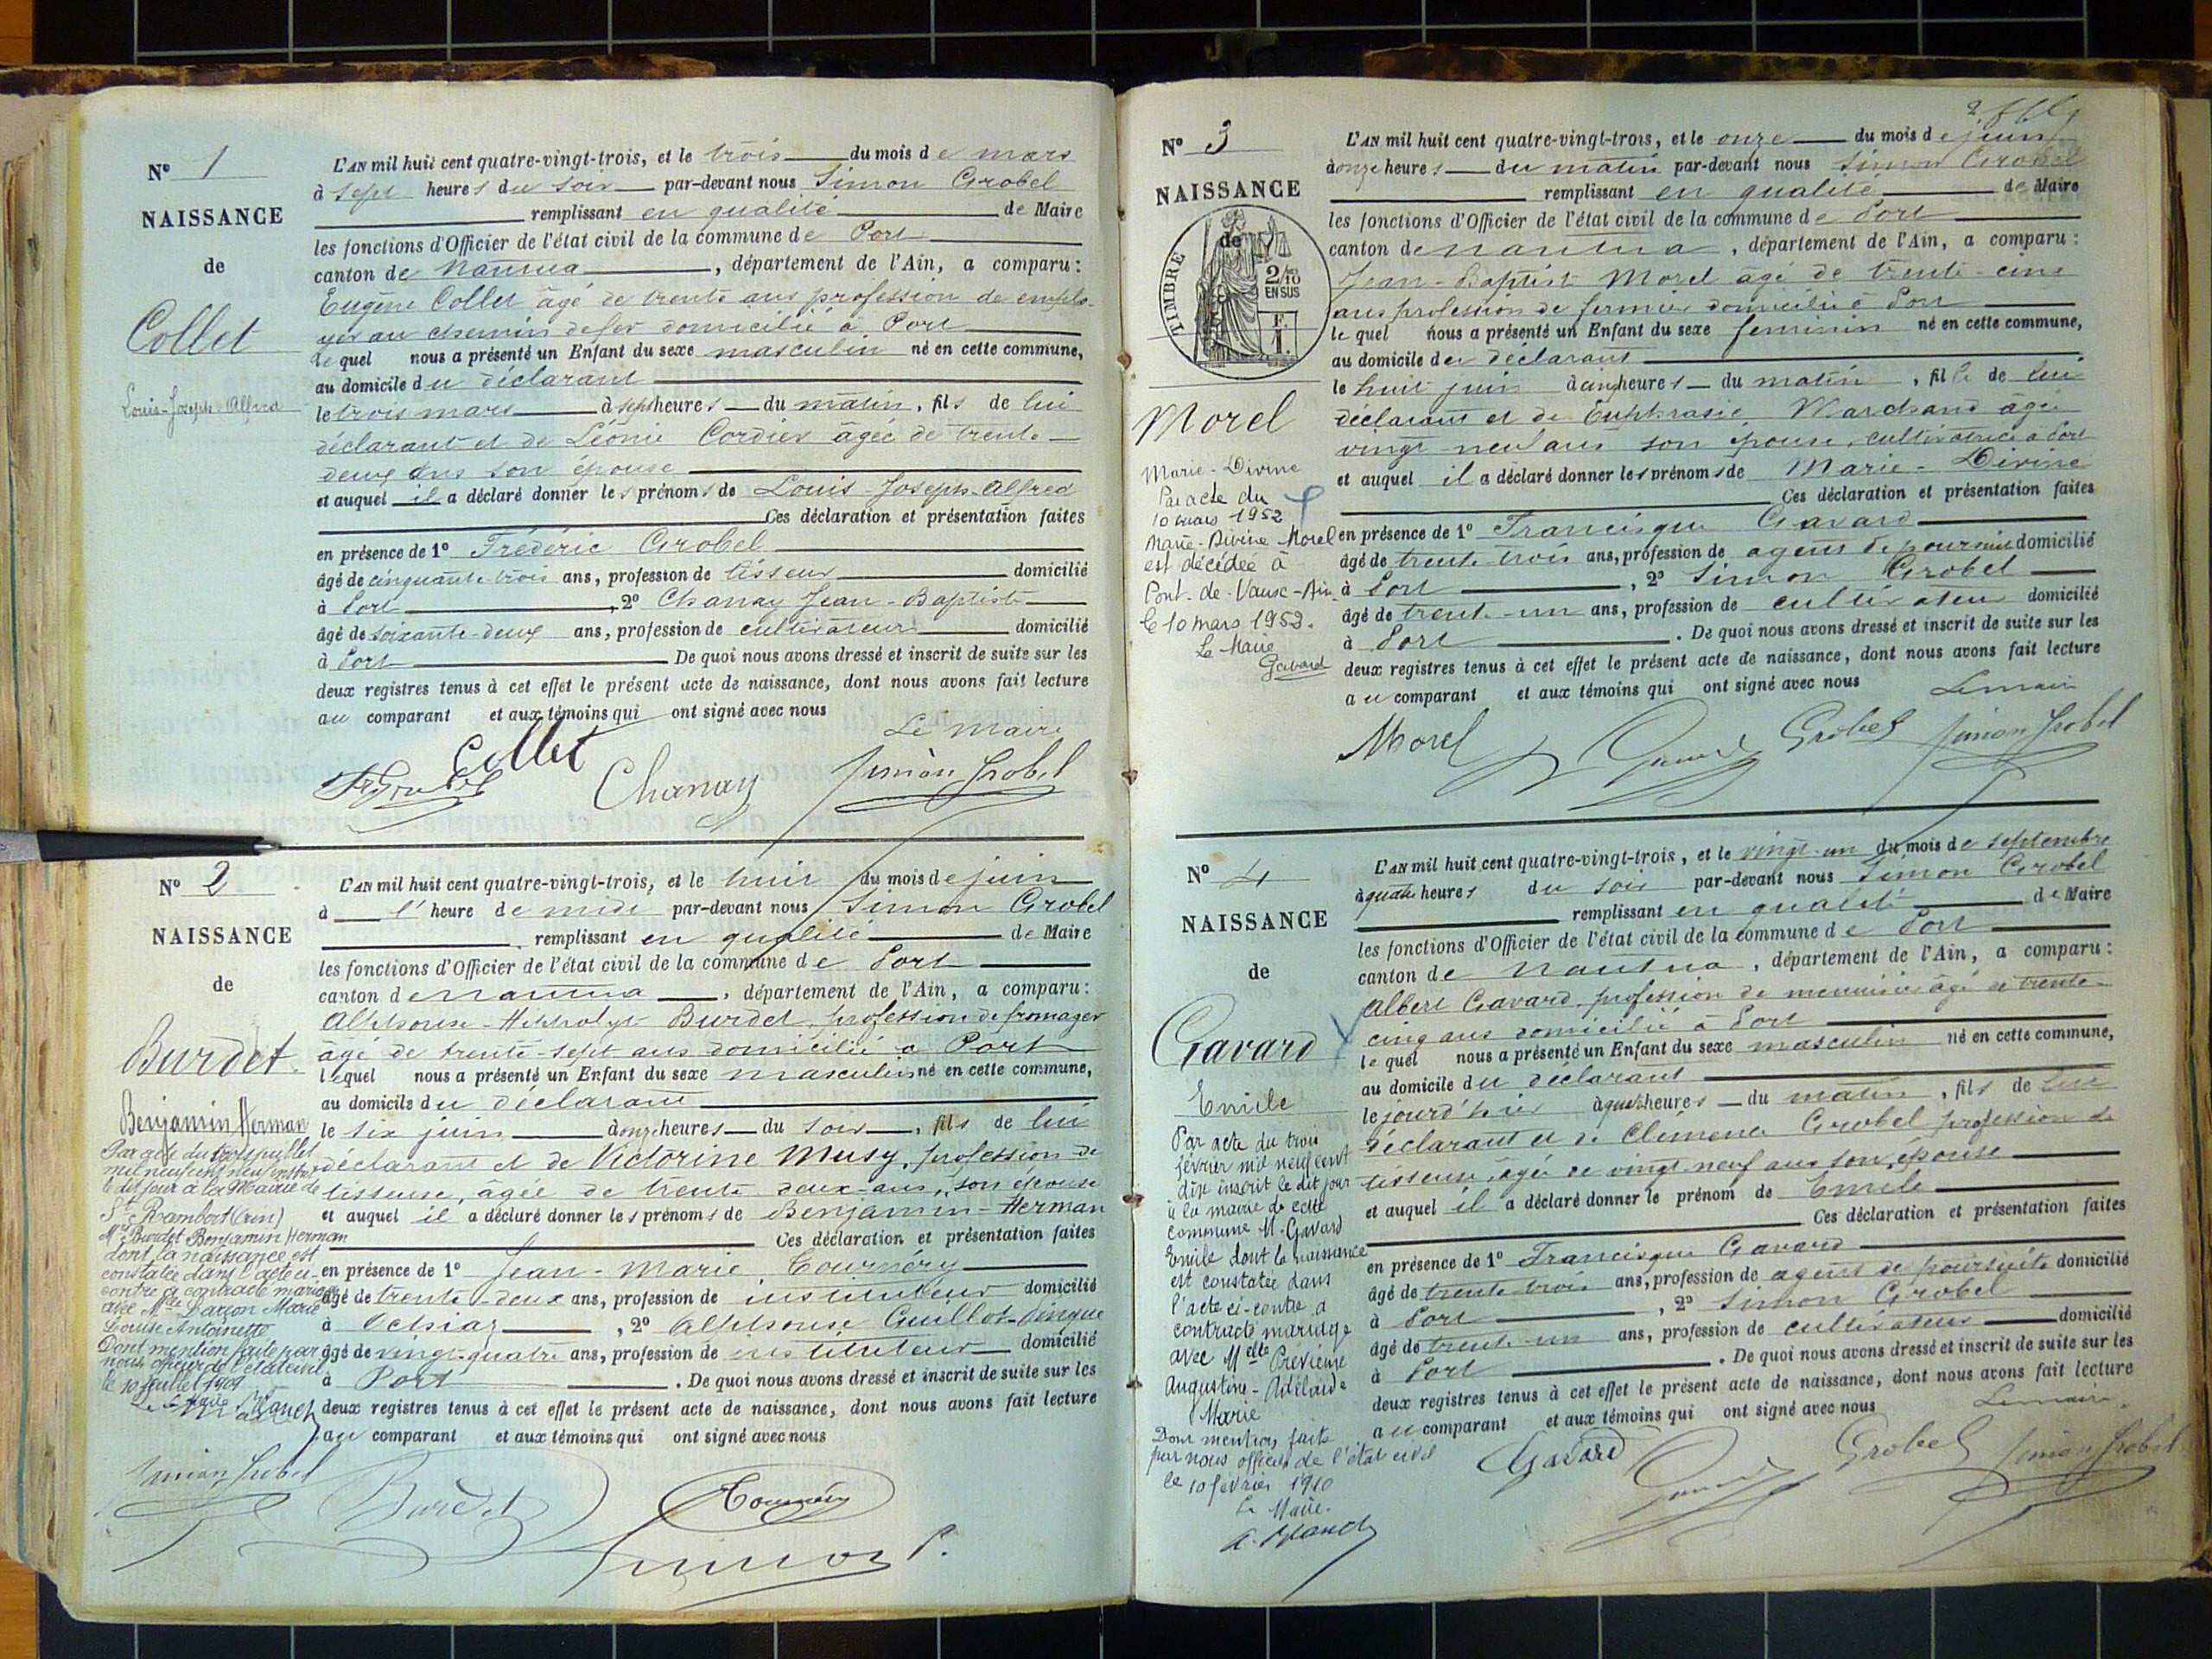 N° 1
NAISSANCE
de
Collet
Louis-Joseph-Alfred
L'AN mil huit cent quatre-vingt-trois, et le trois du mois de mars
à sept heures du soir par-devant nous Simon Grobel
remplissant en qualité de Maire
les fonctions d'Officier de l'état civil de la commune de Port
canton de Nantua, département de l'Ain, a comparu :
Eugène Collet âgé de trente ans profession de emplo-
yés au chemin de fer domicilié à Port
le quel nous a présenté un Enfant du sexe masculin né en cette commune,
au domicile du déclarant
le trois mars à sept heures du matin, fils de lui
déclarant et de Léonie Cordier âgée de trente-
deux ans son épouse
et auquel il a déclaré donner les prénoms de Louis-Joseph-Alfred
Ces déclaration et présentation faites
en présence de 1° Frédéric Grobel
âgé de cinquante trois ans, profession de tisseur domicilié
à Port, 2° Chanay Jean-Baptiste
âgé de soixante-deux ans, profession de cultivateur domicilié
à Port De quoi nous avons dressé et inscrit de suite sur les
deux registres tenus à cet effet le présent acte de naissance, dont nous avons fait lecture
au comparant et aux témoins qui ont signé avec nous
Le Maire
Collet
Fr Grobel Chanay Simon Grobel
N° 2
NAISSANCE
de
Burdet
Benjamin Herman
Par acte du trois juillet
mil neuf cent neuf inscrit
le dit jour à la Mairie de
St Rambert (Ain)
Mr Burdet Benjamin Herman
dont la naissance est
constatée dans l'acte ci-
contre a contracté mariage
avec Melle Marie
Louise Antoinette
Dont mention faite par
nous officier de l'état civil
le 10 juillet 1909
Le Maire
L'AN mil huit cent quatre-vingt-trois, et le huit du mois de juin
à l'heure de midi par-devant nous Simon Grobel
remplissant en qualité de Maire
les fonctions d'Officier de l'état civil de la commune de Port
canton de Nantua, département de l'Ain, a comparu :
Alphonse-Hippolyte Burdet, profession de fromager
âgé de trente-sept ans domicilié à Port
lequel nous a présenté un Enfant du sexe masculin né en cette commune,
au domicile du déclarant
le six juin à onze heures du soir, fils de lui
déclarant et de Victorine Musy, profession de
tisseuse, âgée de trente deux-ans, son épouse
et auquel il a déclaré donner les prénoms de Benjamin-Herman
Ces déclaration et présentation faites
en présence de 1° Jean-Marie Tournéry
âgé de trente-deux ans, profession de instituteur domicilié
à, 2° Alphonse Guillot-Vingue
âgé de vingt-quatre ans, profession de instituteur domicilié
à Port. De quoi nous avons dressé et inscrit de suite sur les
deux registres tenus à cet effet le présent acte de naissance, dont nous avons fait lecture
au comparant et aux témoins qui ont signé avec nous
Simon Grobel Burdet Tournéry
N° 3
NAISSANCE
de
TIMBRE
2/10
EN SUS
F.
1.
Morel
Marie-Divine
Par acte du
10 mars 1952
Marie-Divine Morel
est décédée à
Pont-de-Vaux-Ain
le 10 mars 1952.
Le Maire
Gavard
L'AN mil huit cent quatre-vingt-trois, et le onze du mois de juin
à onze heures du matin par-devant nous Simon Grobel
remplissant en qualité de Maire
les fonctions d'Officier de l'état civil de la commune de Port
canton de Nantua, département de l'Ain, a comparu :
Jean-Baptist Morel agé de trente-cinq
ans profession de fermier domicilié à Port
le quel nous a présenté un Enfant du sexe feminin né en cette commune,
au domicile du déclarant
le huit juin à cinq heures du matin, fille de lui
déclarant et de Euphrasie Marchand âgée
vingt neuf ans son épouse, cultivatrice à Port
et auquel il a déclaré donner les prénoms de Marie-Divine
Ces déclaration et présentation faites
en présence de 1° Francisque Gavard
âgé de trente-trois ans, profession de agent de poursuite domicilié
à Port, 2° Simon Grobel
âgé de trent-un ans, profession de cultivateur domicilié
à Port. De quoi nous avons dressé et inscrit de suite sur les
deux registres tenus à cet effet le présent acte de naissance, dont nous avons fait lecture
au comparant et aux témoins qui ont signé avec nous
Lemaire
Morel Gavard Grobel Simon Grobel
N° 4
NAISSANCE
de
Gavard
Emile
Par acte du trois
février mil neuf cent
dix inscrit le dit jour
à la mairie de cette
commune M. Gavard
Emile dont la naissance
est constatée dans
l'acte ci-contre a
contracté mariage
avec Melle Prévieux
Augustine-Adélaïde
Marie
Dont mention faite
par nous officier de l'état civil
le 10 février 1910
Le Maire.
L'AN mil huit cent quatre-vingt-trois, et le vingt-un du mois de septembre
à quatre heures du soir par-devant nous Simon Grobel
remplissant en qualité de Maire
les fonctions d'Officier de l'état civil de la commune de Port
canton de Nantua, département de l'Ain, a comparu :
Albert Gavard, profession de menuisier âgé de trente-
cinq ans domicilié à Port
le quel nous a présenté un Enfant du sexe masculin né en cette commune,
au domicile du déclarant
le jourd'hier à quatre heures du matin, fils de lui
déclarant et de Clémence Grobel profession de
tisseuse, âgée de vingt-neuf ans son épouse
et auquel il a déclaré donner le prénom de Emile
Ces déclaration et présentation faites
en présence de 1° Francisque Gavard
âgé de trente trois ans, profession de agent de poursuite domicilié
à Port, 2° Simon Grobel
âgé de trent-un ans, profession de cultivateur domicilié
à Port. De quoi nous avons dressé et inscrit de suite sur les
deux registres tenus à cet effet le présent acte de naissance, dont nous avons fait lecture
au comparant et aux témoins qui ont signé avec nous
Lemaire.
Gavard Gavard Grobel Simon Grobel